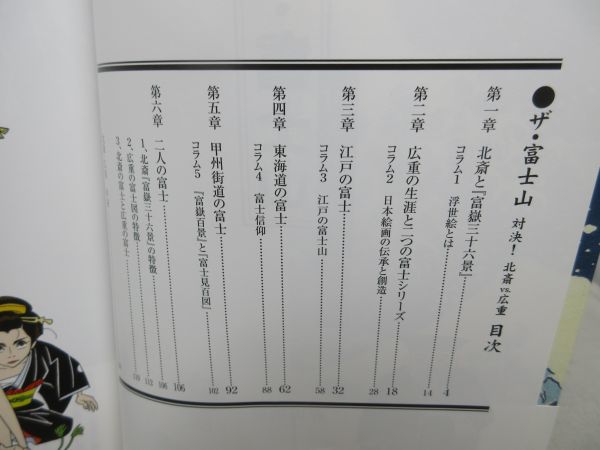 ●ザ・富士山 対決！ 北斎vs.広重 目次
第一章 北斎と『富嶽三十六景』 4
コラム1 浮世絵とは 14
第二章 広重の生涯と二つの富士シリーズ 18
コラム2 日本絵画の伝承と創造 28
第三章 江戸の富士 32
コラム3 江戸の富士山 58
第四章 東海道の富士 62
コラム4 富士信仰 88
第五章 甲州街道の富士 92
コラム5 『富嶽百景』と『富士見百図』 102
第六章 二人の富士 106
1、北斎『富嶽三十六景』の特徴 106
2、広重の富士図の特徴 112
3、北斎の富士と広重の富士